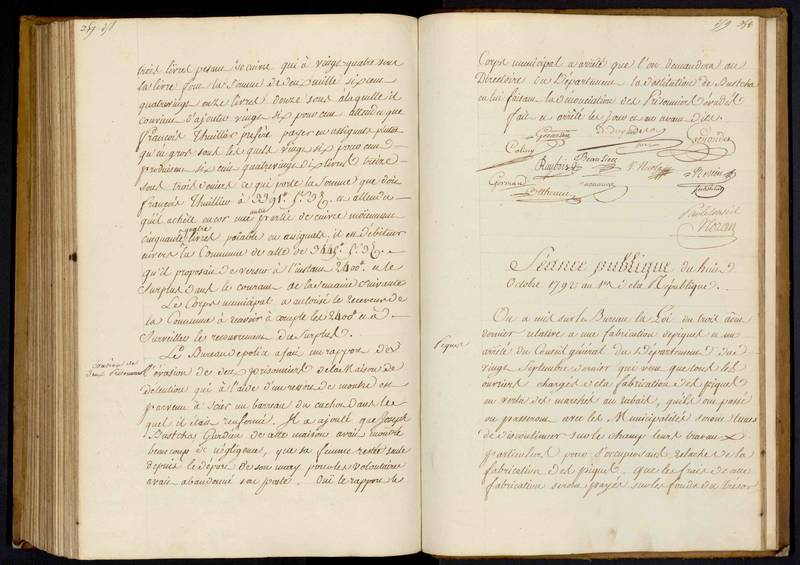 trois livres pesant de cuivre qui à vingt quatre sous
la livre font la somme de deux mille six cent
quatrevingt onze livres douze sous à laquelle il
convient d'ajouter vingt six pour cent attendu que
françois Thuillier préfère payer en assignats plutôt
qu'en gros sous les quels vingt six pour cent
produisent six cent quatrevingt dix livres treize
sous trois deniers ce qui porte la somme que doit
françois Thuillier à 3391# 5s 3d. et attendu
qu'il achète encor une autre partie de cuivre moiennant
cinquante quatre livres paiable en assignats, il est débiteur
envers la Commune de celle de 3445# 5s 3d.
qu'il propose de verser à l'instant 2400# et le
surplus dans le courant de la semaine suivante
Le Corps municipal a autorisé le receveur de
la Commune à recevoir à compte les 2400# et à
surveiller le recouvrement du surplus.
Le Bureau de police a fait un rapport de
Évasion de deux Prisonniers
l'évasion de deux prisonniers de la Maison de
détention qui à l'aide d'un ressort de montre ont
parvenu à scier un barreau du cachot dans le
quel il était renfermé. Il a ajouté que Joseph
Bustcha Gardien de cette maison avait montré
beaucoup de négligence, que sa femme restée seule
depuis le départ de son mary pour les volontaires
avait abandonné sa porte. Ouï le rapport le
Corps municipal a arrêté que l'on demandera au
Directoire du Département la destitution de Bustcha
en lui faisant la dénonciation des Prisonniers évadés
fait et arrêté les jour et an avant dits.
Coliny
Gormand
Rozan
Séance publique du huit
Octobre 1792 au 1er de la République.
On a mis sur le Bureau la Loi du trois
dernier relative à une fabrication de piques et un
Piques
arrêté du Conseil général du Département du
vingt Septembre dernier qui veut que tous les
ouvriers chargés de la fabrication des piques
en vertu des marchés au rabais, qu'ils ont passé
ou passeront avec les Municipalités seront tenus
de discontinuer sur le champ leurs travaux
particuliers pour s'occuper sans relache de la
fabrication des piques. que les frais de cette
fabrication seront payés sur les fonds du trésor